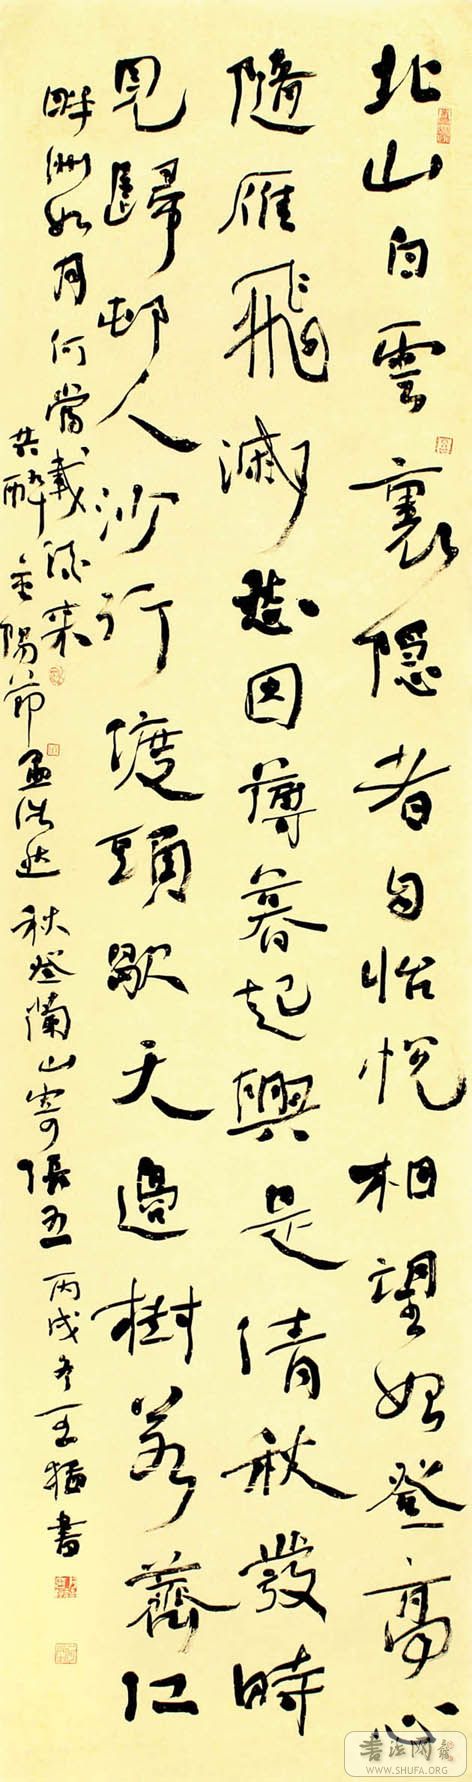 北山白雲裏隱者自怡悅相望始登高心
隨雁飛滅愁因薄暮起興是清秋發時
見歸邨人沙行渡頭歇天邊樹若薺江
畔洲如月何當載酒來
共醉重陽節 孟浩然 秋登蘭山寄張五 丙戌冬 王 書
書法网
WWW.SHUFA.ORG